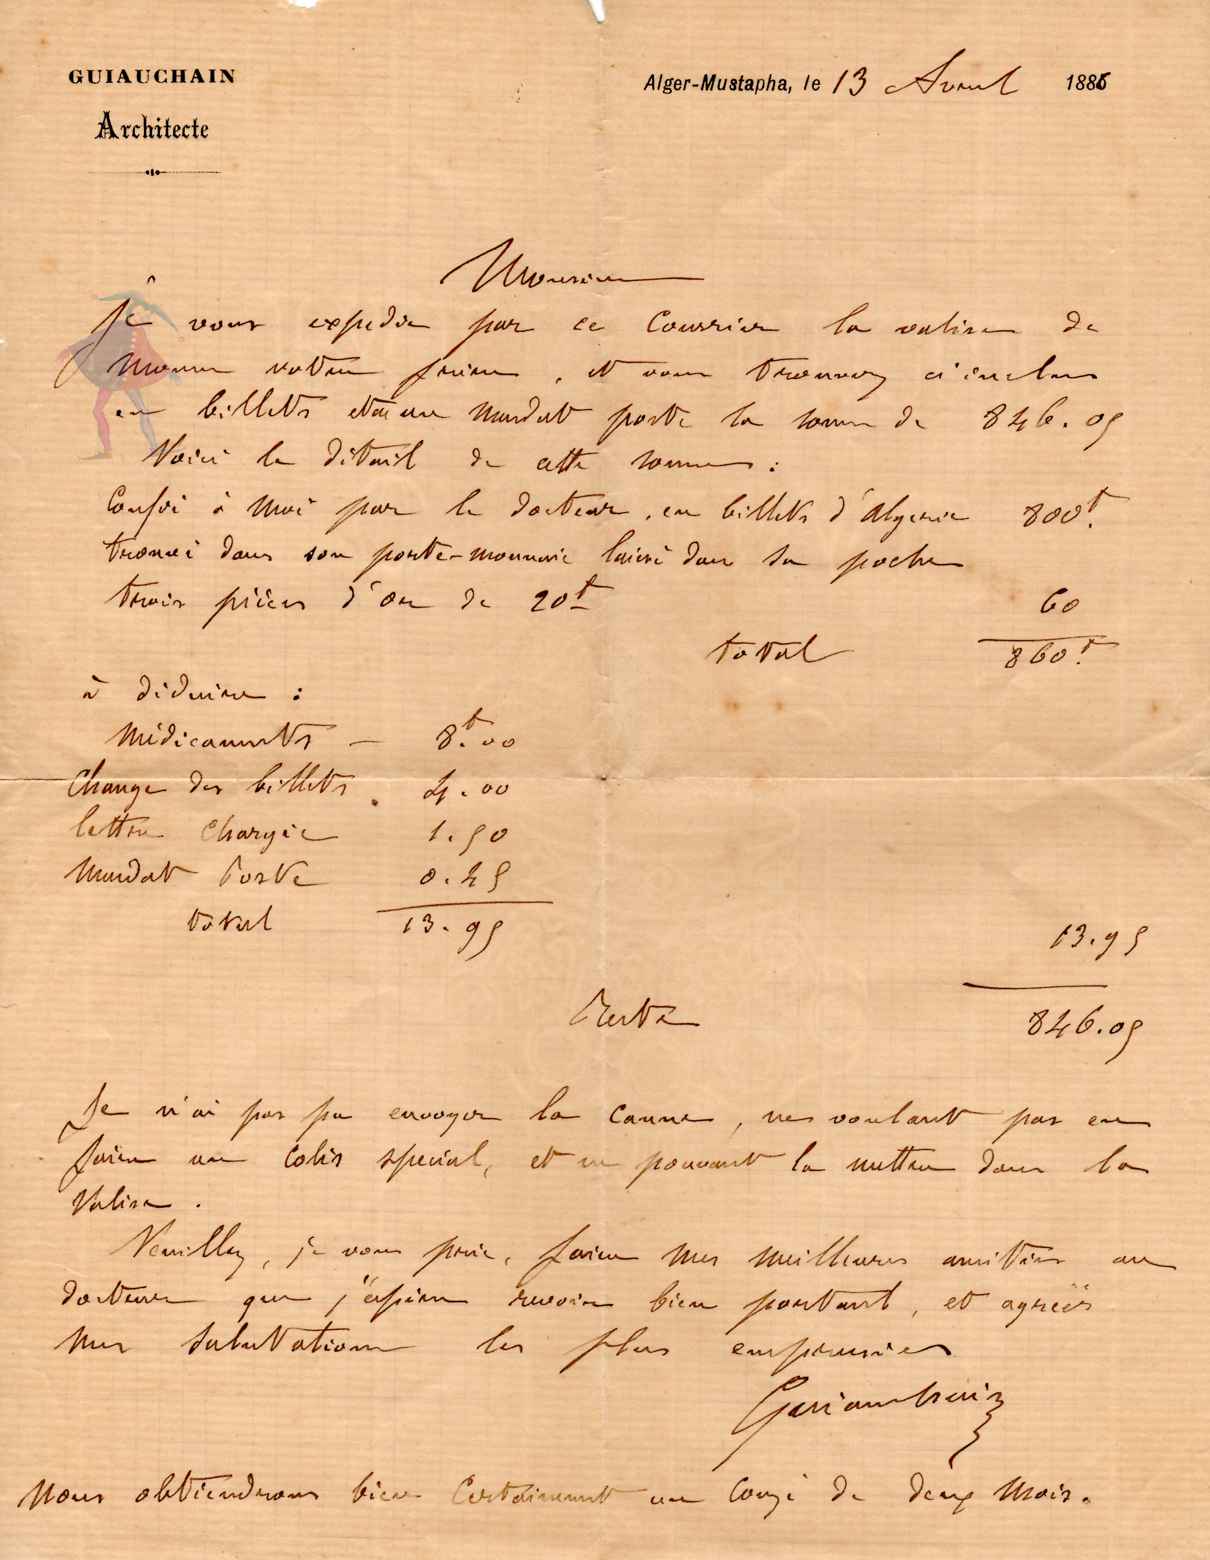 GUIAUCHAIN
Architecte
Alger-Mustapha, le 13 Avril 1886
Monsieur
Je vous expedie par ce Courrier la valise de
Monsr votre frère, et vous trouverez ci inclus
en billets et en un Mandat poste la somme de 846.05
Voici le détail de cette somme :
Confié à Moi par le docteur, en billets d'Algerie 800f.
trouvé dans son porte-monnaie laissé dans sa poche
trois pièces d'or de 20f 60
total 860f.
à déduire :
Médicaments — 8f.00
Change des billets. 4.00
lettre Chargée 1.50
Mandat Poste 0.45
total 13.95 13.95
Reste 846.05
Je n'ai pas pu envoyer la canne, ne voulant pas en
faire un Colis special, et ne pouvant la mettre dans la
Valise.
Veuillez, je vous prie, faire mes meilleures amitiés au
docteur que j'éspère revoir bien portant, et agréés
Mes Salutations les plus empressées
Guiauchain
Nous obtiendrons bien Certainement un Congé de deux Mois.